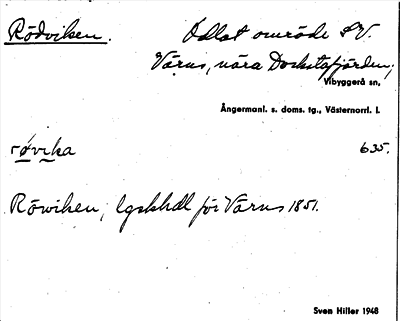 Rödviken. Odlat område S.V.
Värns, nära Dockstafjärden;
Vibyggerå sn,
Ångermanl. s. doms. tg., Västernorrl. l.
rø̀vika 635.
Röwiken, lgskhdl för Värns 1851.
Sven Hiller 1948